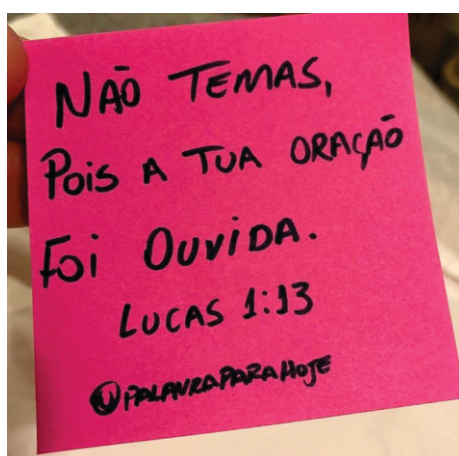 NÃO TEMAS,
POIS A TUA ORAÇÃO
FOI OUVIDA.
LUCAS 1:13
@PALAVRAPARAHOJE